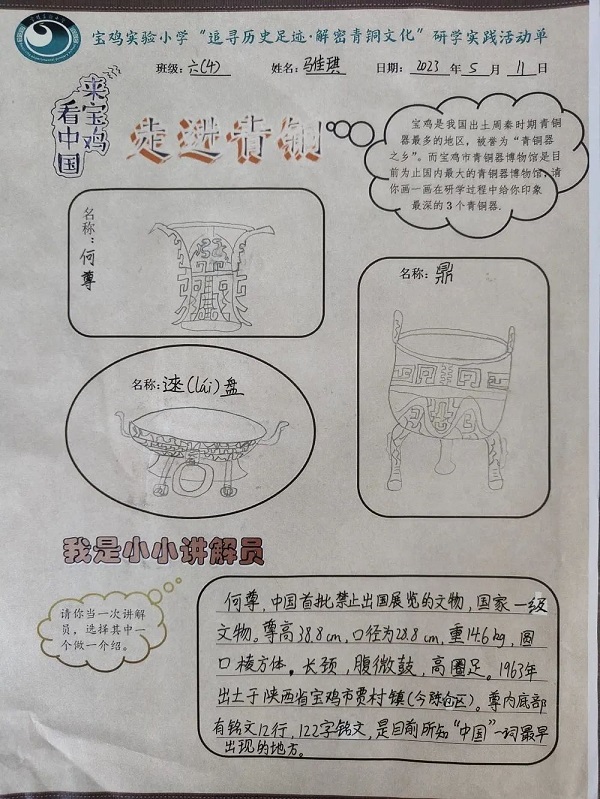 宝鸡实验小学“追寻历史足迹·解密青铜文化”研学实践活动单
班级：六(4) 姓名：马佳琪 日期：2023 年 5 月 11 日
来宝鸡
看中国
走进青铜
宝鸡是我国出土周秦时期青铜
器最多的地区，被誉为“青铜器
之乡”。而宝鸡市青铜器博物馆是目
前为止国内最大的青铜器博物馆，请
你画一画在研学过程中给你印象
最深的 3 个青铜器.
名称：何尊
名称：鼎
名称：逨(lái)盘
我是小小讲解员
请你当一次讲解
员，选择其中一
个做一介绍。
何尊，中国首批禁止出国展览的文物，国家一级
文物。尊高38.8cm，口径为28.8cm，重14.6kg，圆
口棱方体，长颈，腹微鼓，高圈足。1963年
出土于陕西省宝鸡市贾村镇(今陈仓区)。尊内底部
有铭文12行，122字铭文，是目前所知“中国”一词最早
出现的地方。